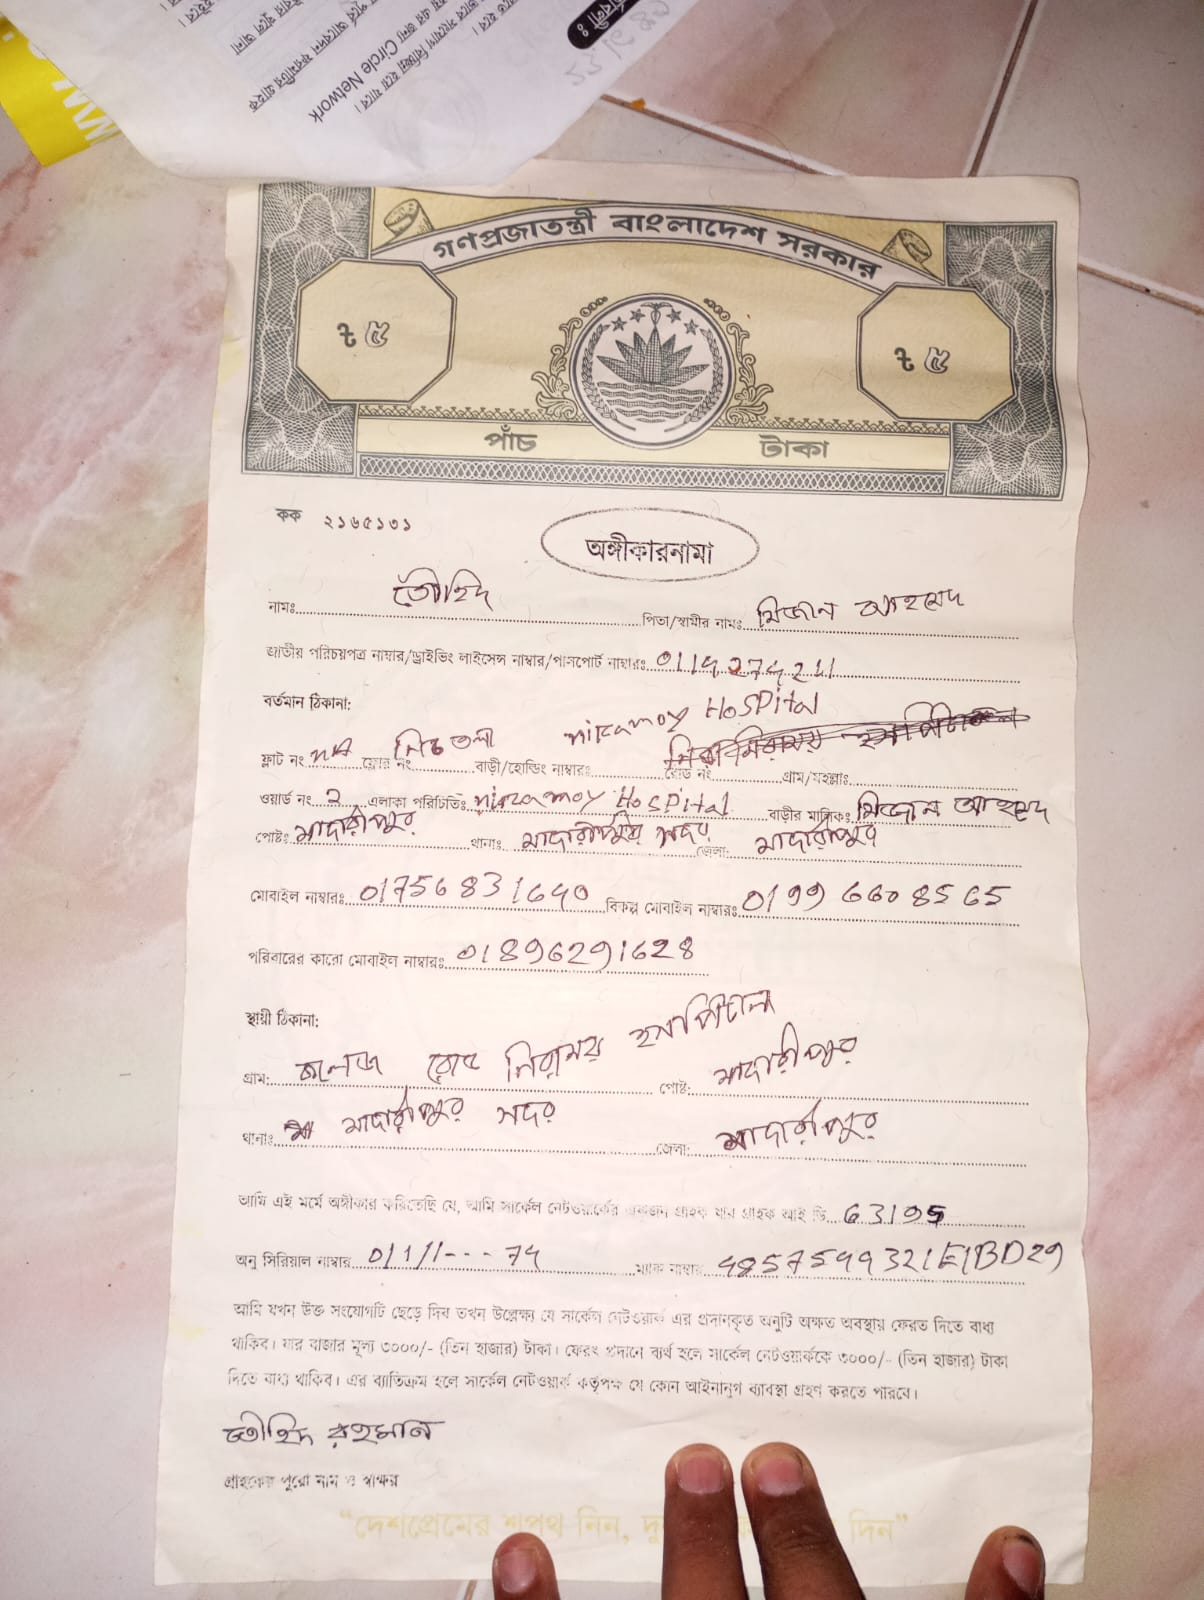 Circle Network
গণপ্রজাতন্ত্রী বাংলাদেশ সরকার
৳ ৫
৳ ৫
পাঁচ টাকা
কক ২১৬৫১৩১
অঙ্গীকারনামা
নামঃ তৌহিদ পিতা/স্বামীর নামঃ মিজান আহমেদ
জাতীয় পরিচয়পত্র নাম্বার/ড্রাইভিং লাইসেন্স নাম্বার/পাসপোর্ট নাম্বারঃ
বর্তমান ঠিকানা:
niramoy HosPital
ফ্লাট নং NA ফ্লোর নং নিচ তলা বাড়ী/হোল্ডিং নাম্বারঃ রোড নং গ্রাম/মহল্লাঃ
ওয়ার্ড নং 2 এলাকা পরিচিতিঃ niramoy HosPital বাড়ীর মালিকঃ মিজান আহমেদ
পোষ্টঃ মাদারীপুর থানাঃ মাদারীপুর সদর জেলা: মাদারীপুর
মোবাইল নাম্বারঃ 01756831640 বিকল্প মোবাইল নাম্বারঃ 0199 660 8565
পরিবারের কারো মোবাইল নাম্বারঃ 01896291628
স্থায়ী ঠিকানা:
গ্রাম: কলেজ রোড নিরাময় হসপিটাল পোষ্ট: মাদারীপুর
থানাঃ মাদারীপুর সদর জেলা: মাদারীপুর
আমি এই মর্মে অঙ্গীকার করিতেছি যে, আমি সার্কেল নেটওয়ার্কের একজন গ্রাহক যার গ্রাহক আই ডি 63195
অনু সিরিয়াল নাম্বার ম্যাক নাম্বার
আমি যখন উক্ত সংযোগটি ছেড়ে দিব তখন উল্লেক্ষ্য যে সার্কেল নেটওয়ার্ক এর প্রদানকৃত অনুটি অক্ষত অবস্থায় ফেরত দিতে বাধ্য
থাকিব। যার বাজার মূল্য ৩০০০/- (তিন হাজার) টাকা। ফেরৎ প্রদানে ব্যর্থ হলে সার্কেল নেটওয়ার্ককে ৩০০০/- (তিন হাজার) টাকা
দিতে বাধ্য থাকিব। এর ব্যাতিক্রম হলে সার্কেল নেটওয়ার্ক কর্তৃপক্ষ যে কোন আইনানুগ ব্যাবস্থা গ্রহণ করতে পারবে।
তৌহিদ রহমান
গ্রাহকের পুরো নাম ও স্বাক্ষর
"দেশপ্রেমের শপথ নিন, দিন"